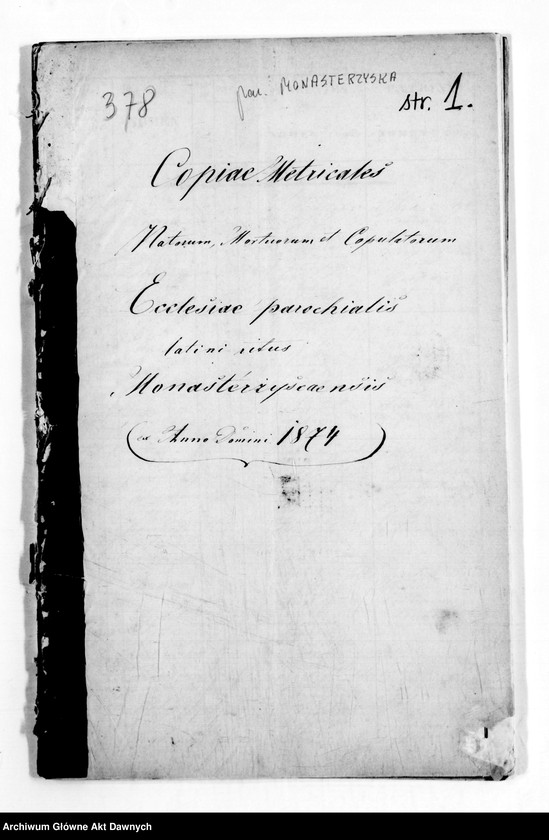 378
par. MONASTERZYSKA
str. 1.
Copiae Metricales
Natorum, Mortuorum et Copulatorum
Ecclesiae parochialis
latini ritus
Monasterzyscaensis
ex Anno Domini 1874
Archiwum Główne Akt Dawnych